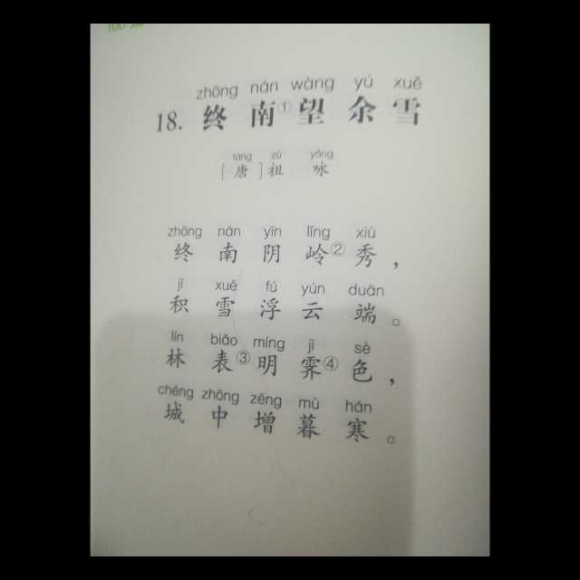 zhōng nán wàng yú xuě
18. 终南①望余雪
táng zǔ yǒng
[唐]祖咏
zhōng nán yīn lǐng xiù
终南阴岭②秀，
jī xuě fú yún duān
积雪浮云端。
lín biǎo míng jì sè
林表③明霁④色，
chéng zhōng zēng mù hán
城中增暮寒。